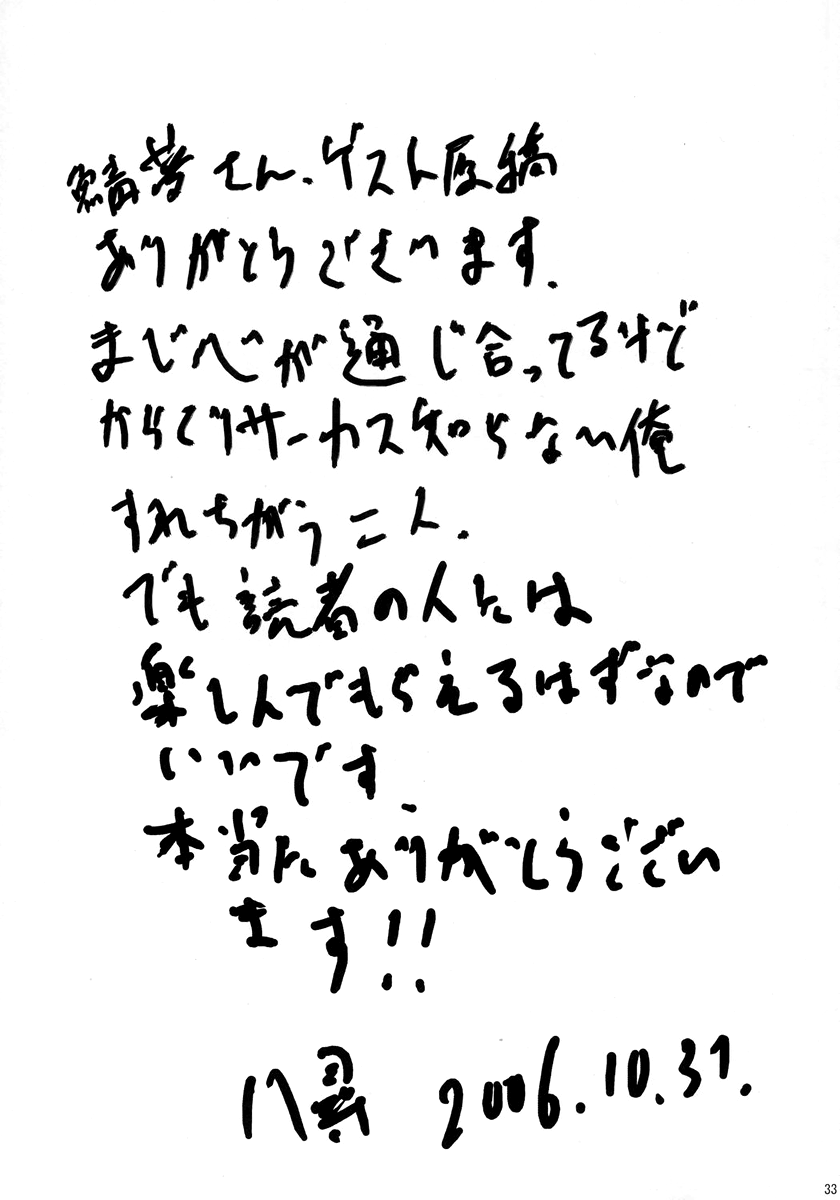 鯖夢さん、ゲスト原稿
ありがとうございます.
まじ心が通じ合ってるけど
からくりサーカス知らない俺
すれちがう二人.
でも読者の人には
楽しんでもらえるはずなので
いいです.
本当にありがとうござい
ます!!
八尋 2006.10.31.
33